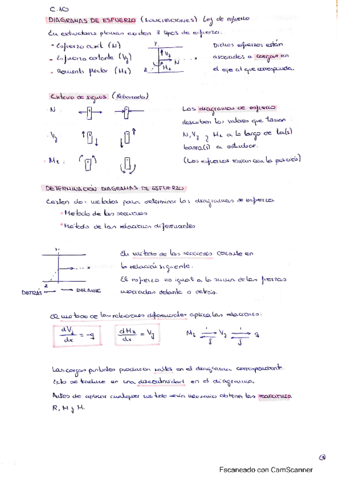 DIAGRAMAS DE ESFUERZO (SOLICITACIONES) Ley de esfuerzo
En estructuras planas existen 3 tipos de esfuerzo:
• Esfuerzo axil (N)
• Esfuerzo cortante (Vy)
• Momento flector (Mz)
Dichos esfuerzos están
asociados a
el eje al que corresponda.
Criterio de signos (Rebanada)
N
Vy
Mz
Los diagramas de esfuerzo
describen los valores que toman
N, Vy y Mz a lo largo de la(s)
barra(s) a estudiar.
(Los esfuerzos varían con la posición)
DETERMINACIÓN DIAGRAMAS DE ESFUERZO
Existen dos métodos para determinar los diagramas de esfuerzo
• Método de las secciones
• Método de las relaciones diferenciales
El método de las secciones consiste en
la relación siguiente:
El esfuerzo es igual a la suma de las fuerzas
asociadas delante o detrás.
DETRÁS DELANTE
El método de las relaciones diferenciales aplica las relaciones:
dVy/dx = -q
dMz/dx = Vy
Mz → Vy → q
Las cargas puntuales producen saltos en el diagrama correspondiente.
Esto se traduce en una discontinuidad en el diagrama.
Antes de aplicar cualquier método será necesario obtener las reacciones
Escaneado con CamScanner